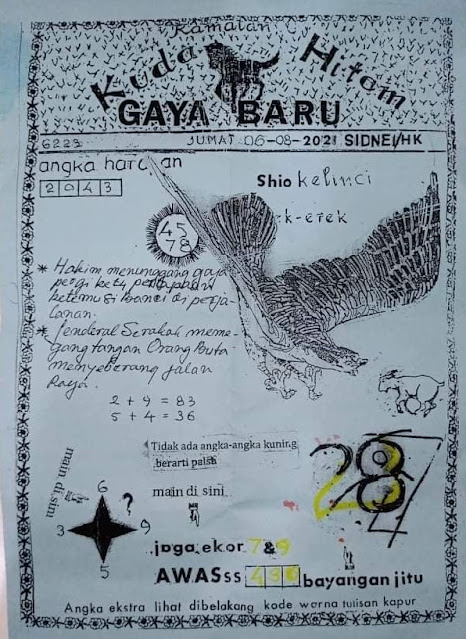 Ramalan
Kuda Hitam
GAYA BARU
6223 JUMAT 06-08-2021 SIDNEI/HK
angka harc an
2 0 4 3
Shio kelinci
k-erek
45
78
* Hakim menunggang gaja
pergi
ketemu si banci di perja
lanan.
* Jenderal Serakah meme-
gang tangan Orang Buta
menyeberang jalan
Raya.
2 + 9 = 83
5 + 4 = 36
Tidak ada angka-angka kuning
berarti palsu
main di sini
main di sini
6
?
3
9
5
28
7
joga ekor 7 & 9
AWASss bayangan jitu
Angka ekstra lihat dibelakang kode werna tulisan kapur